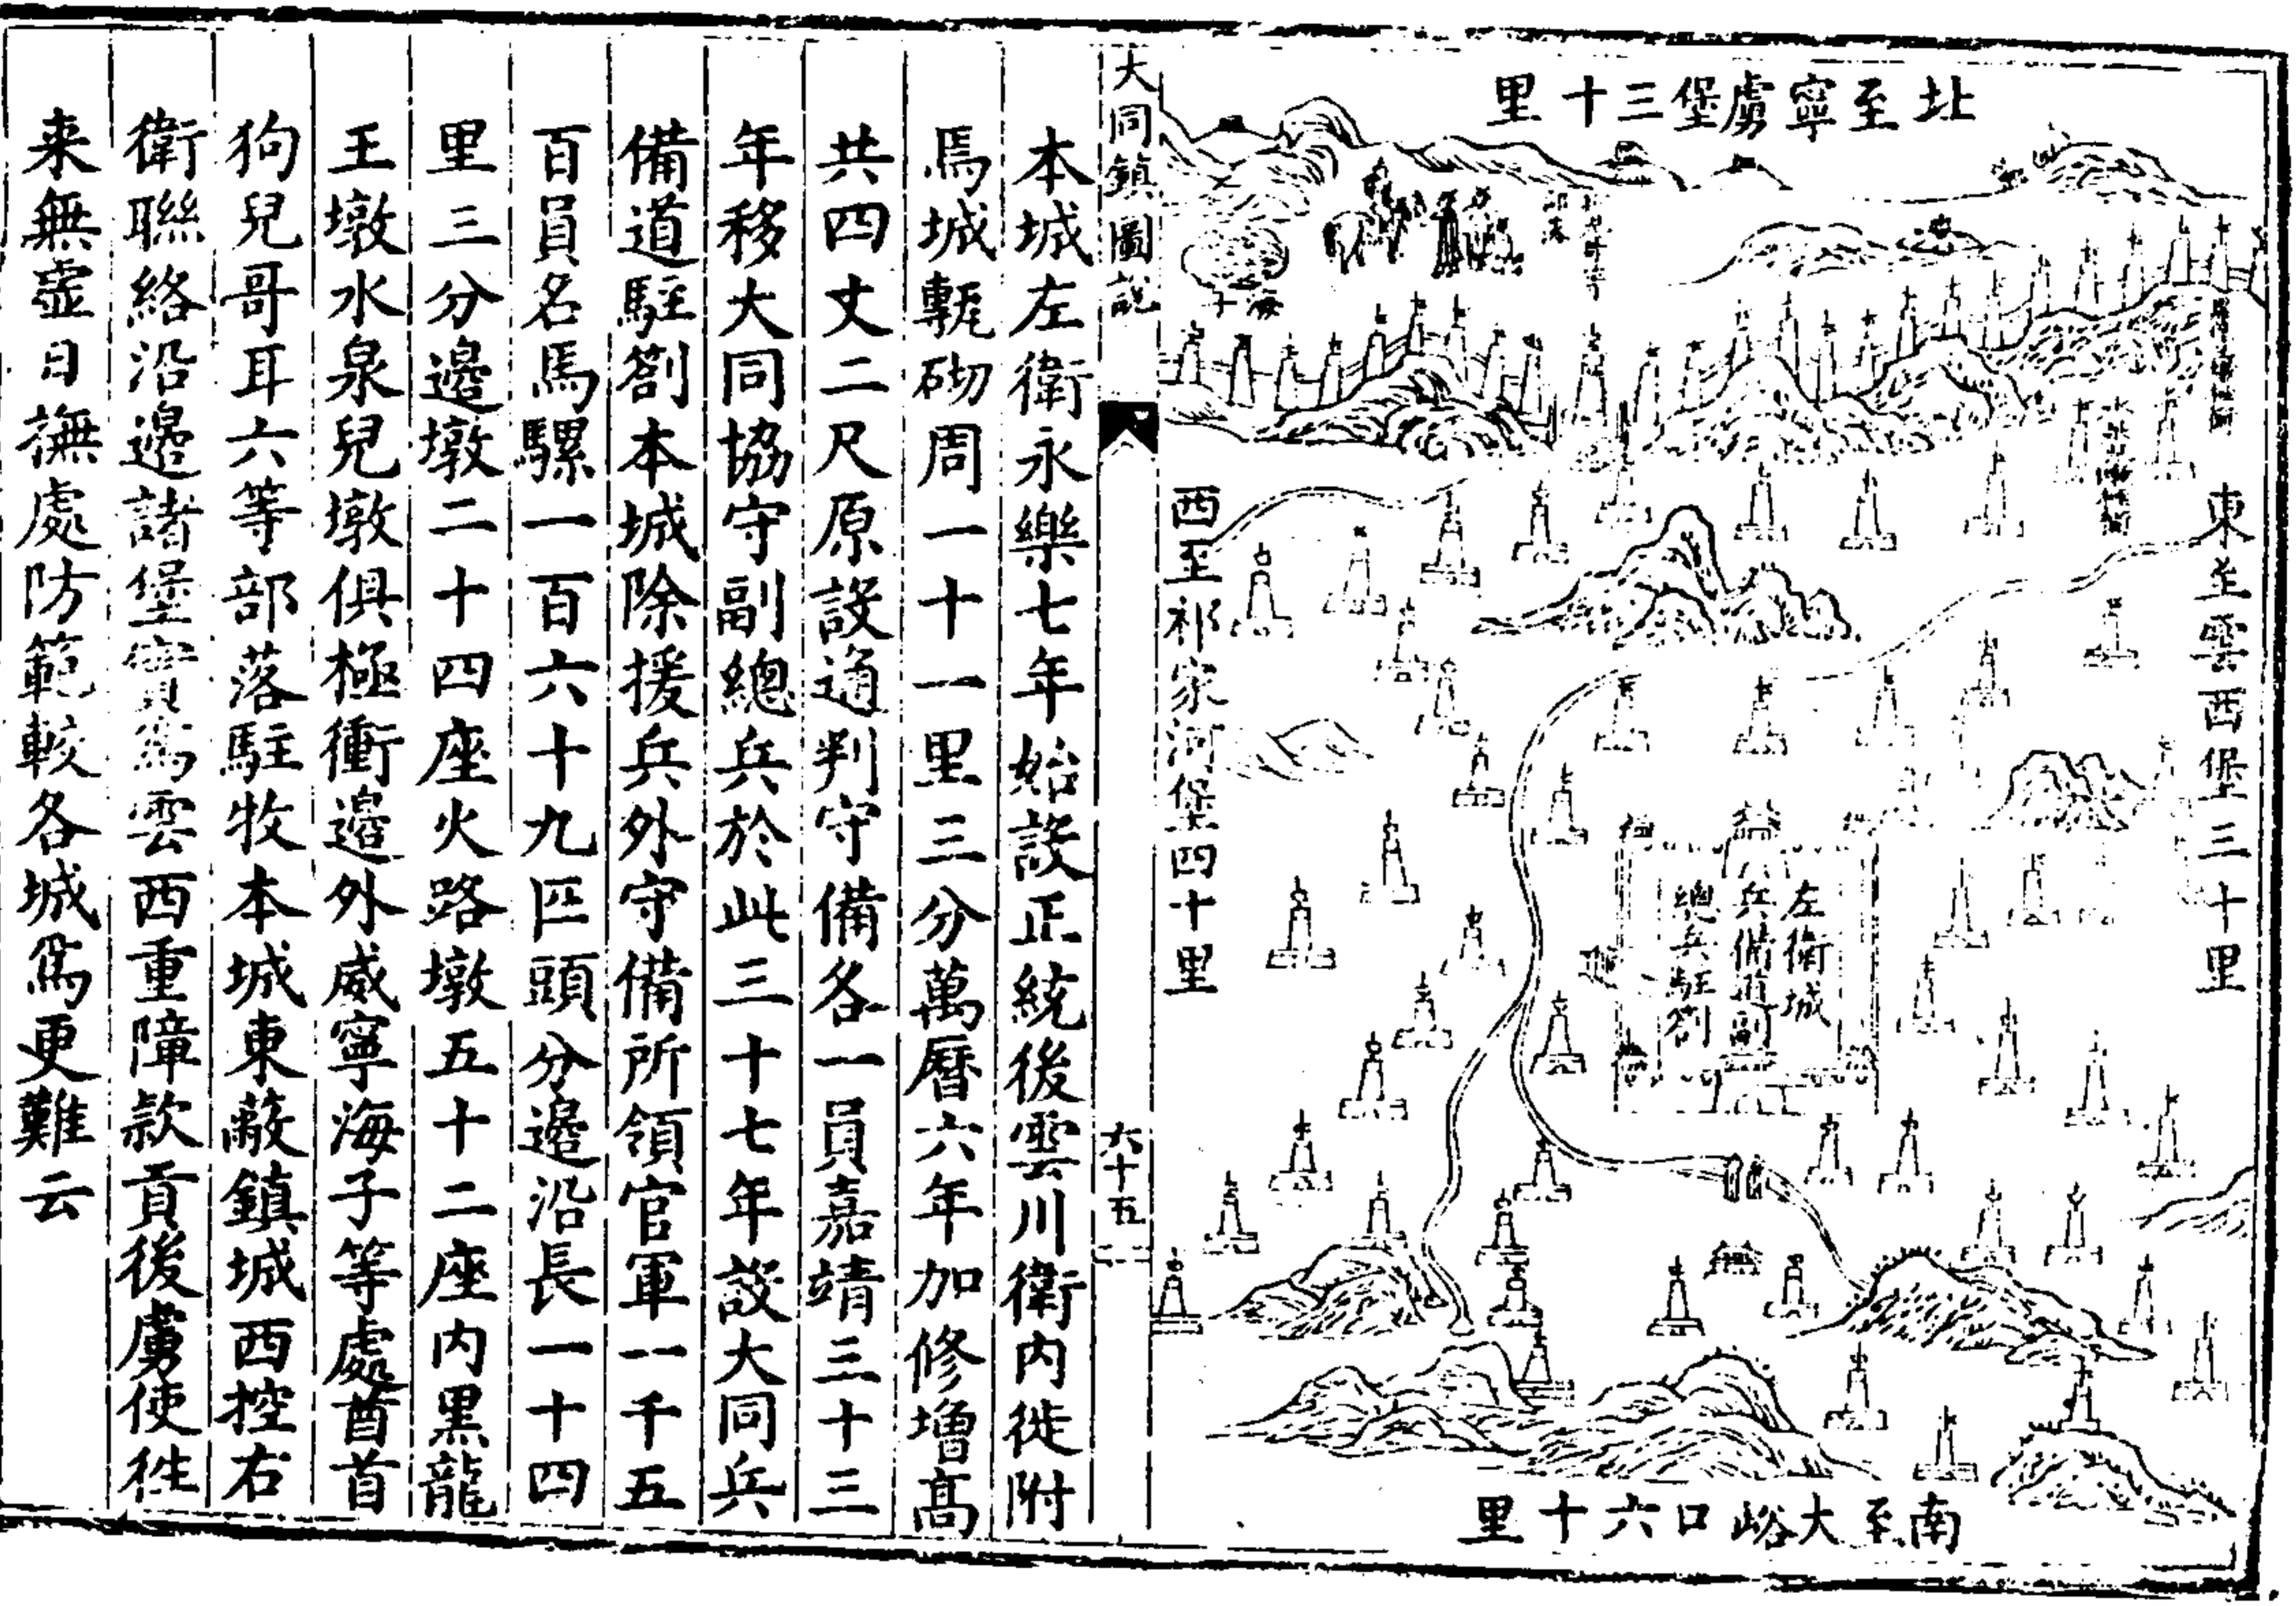 北至寧虜堡三十里
東至雲西堡三十里
左衛城
兵備道副
總兵駐劄
海子
南至大峪口六十里
西至祁家河堡四十里
大同鎮圖説
六十五
本城左衛永樂七年始設正統後雲川衛内徙附
焉城甎砌周一十一里三分萬曆六年加修增高
共四丈二尺原設通判守備各一員嘉靖三十三
年移大同協守副總兵於此三十七年設大同兵
備道駐劄本城除援兵外守備所領官軍一千五
百員名馬騾一百六十九匹頭分邊沿長一十四
里三分邊墩二十四座火路墩五十二座内黑龍
王墩水泉兒墩俱極衝邊外威寧海子等處酋首
狗兒哥耳六等部落駐牧本城東蔽鎮城西控右
衛聯絡沿邊諸堡實爲雲西重障款貢後虜使徃
来無虛日撫處防範較各城爲更難云